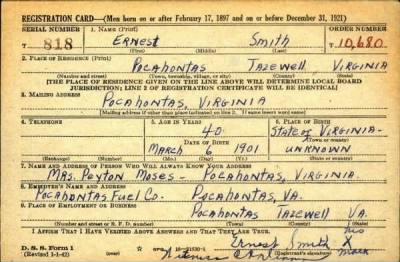 REGISTRATION CARD—(Men born on or after February 17, 1897 and on or before December 31, 1921)
SERIAL NUMBER 1. NAME (Print) ORDER NUMBER
T 818 ERNEST Smith T 10,680
(First) (Middle) (Last)
2. PLACE OF RESIDENCE (Print)
POCAHONTAS TAZEWELL VIRGINIA
(Number and street) (Town, township, village, or city) (County) (State)
[THE PLACE OF RESIDENCE GIVEN ON THE LINE ABOVE WILL DETERMINE LOCAL BOARD
JURISDICTION; LINE 2 OF REGISTRATION CERTIFICATE WILL BE IDENTICAL]
3. MAILING ADDRESS
POCAHONTAS, VIRGINIA
[Mailing address if other than place indicated on line 2. If same insert word same]
4. TELEPHONE 5. AGE IN YEARS 6. PLACE OF BIRTH
40 State of VIRGINIA-
DATE OF BIRTH (Town or county)
MARCH 6 1901 UNKNOWN
(Exchange) (Number) (Mo.) (Day) (Yr.) (State or country)
7. NAME AND ADDRESS OF PERSON WHO WILL ALWAYS KNOW YOUR ADDRESS
MRS. PEYTON MOSES - POCAHONTAS, VIRGINIA.
8. EMPLOYER'S NAME AND ADDRESS
POCAHONTAS FUEL CO. POCAHONTAS, VA.
9. PLACE OF EMPLOYMENT OR BUSINESS
POCAHONTAS TAZEWELL VA.
(Number and street or R. F. D. number) (Town) (County) (State)
I AFFIRM THAT I HAVE VERIFIED ABOVE ANSWERS AND THAT THEY ARE TRUE. his
D. S. S. Form 1 Ernest Smith X
(Revised 1-1-42) Witness mark